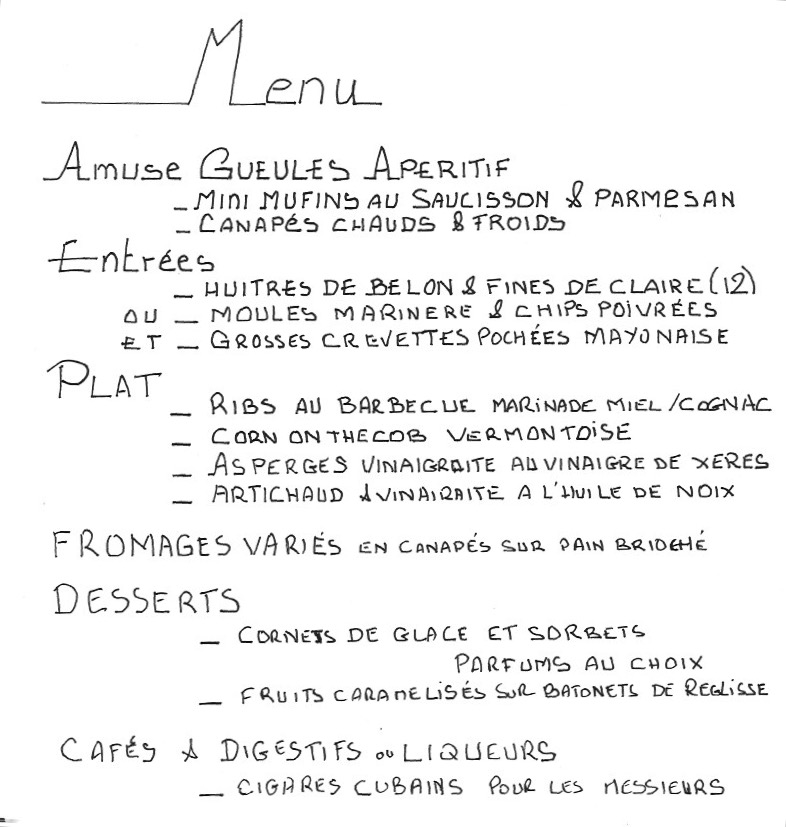 Menu
Amuse GUEULES APERITIF
_ MINI MUFINS AU SAUCISSON & PARMESAN
_ CANAPÉS CHAUDS & FROIDS
Entrées
_ HUITRES DE BELON & FINES DE CLAIRE (12)
OU _ MOULES MARINERE & CHIPS POIVRÉES
ET _ GROSSES CREVETTES POCHÉES MAYONAISE
PLAT
_ RIBS AU BARBECUE MARINADE MIEL/COGNAC
_ CORN ON THE COB VERMONTOISE
_ ASPERGES VINAIGRAITE AU VINAIGRE DE XERES
_ ARTICHAUD & VINAIRAITE A L'HUILE DE NOIX
FROMAGES VARIÉS EN CANAPÉS SUR PAIN
DESSERTS
_ CORNETS DE GLACE ET SORBETS
PARFUMS AU CHOIX
_ FRUITS CARAMELISÉS SUR BATONETS DE REGLISSE
CAFÉS & DIGESTIFS ou LIQUEURS
_ CIGARES CUBAINS POUR LES MESSIEURS